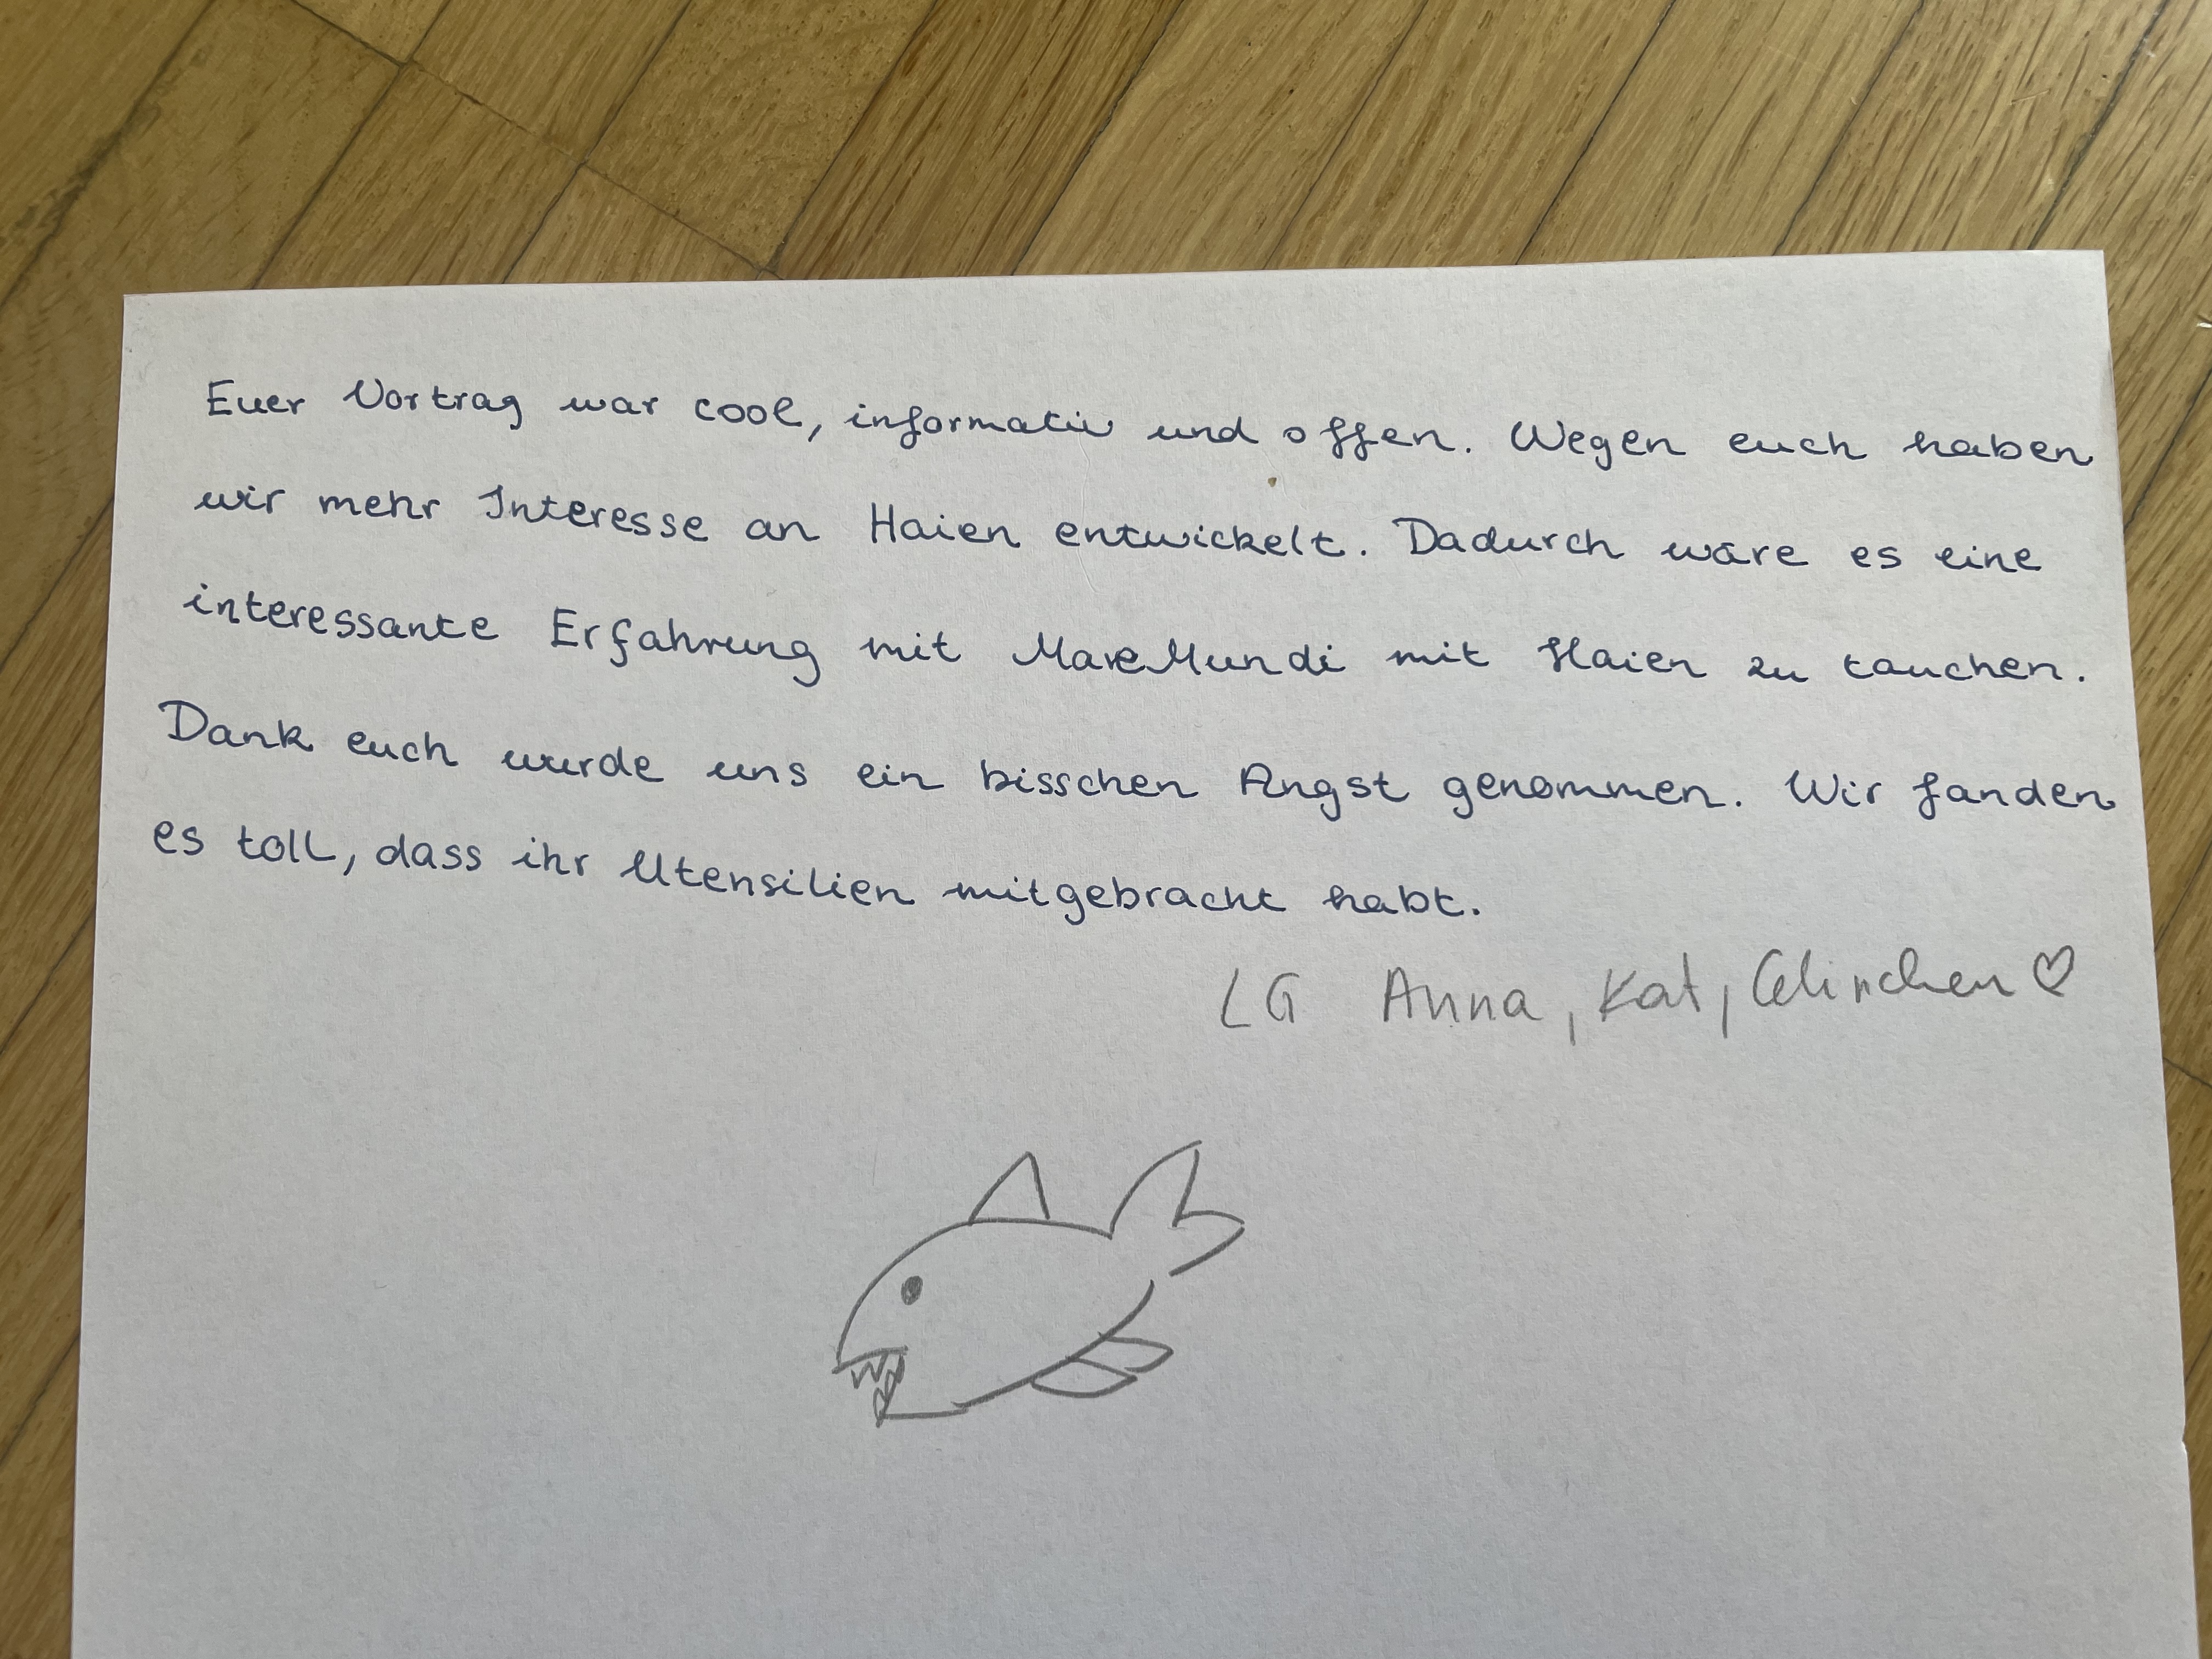 Euer Vortrag war cool, informativ und offen. Wegen euch haben
wir mehr Interesse an Haien entwickelt. Dadurch wäre es eine
interessante Erfahrung mit MareMundi mit Haien zu tauchen.
Dank euch wurde uns ein bisschen Angst genommen. Wir fanden
es toll, dass ihr Utensilien mitgebracht habt.
LG Anna, Kat, Celinchen ♡